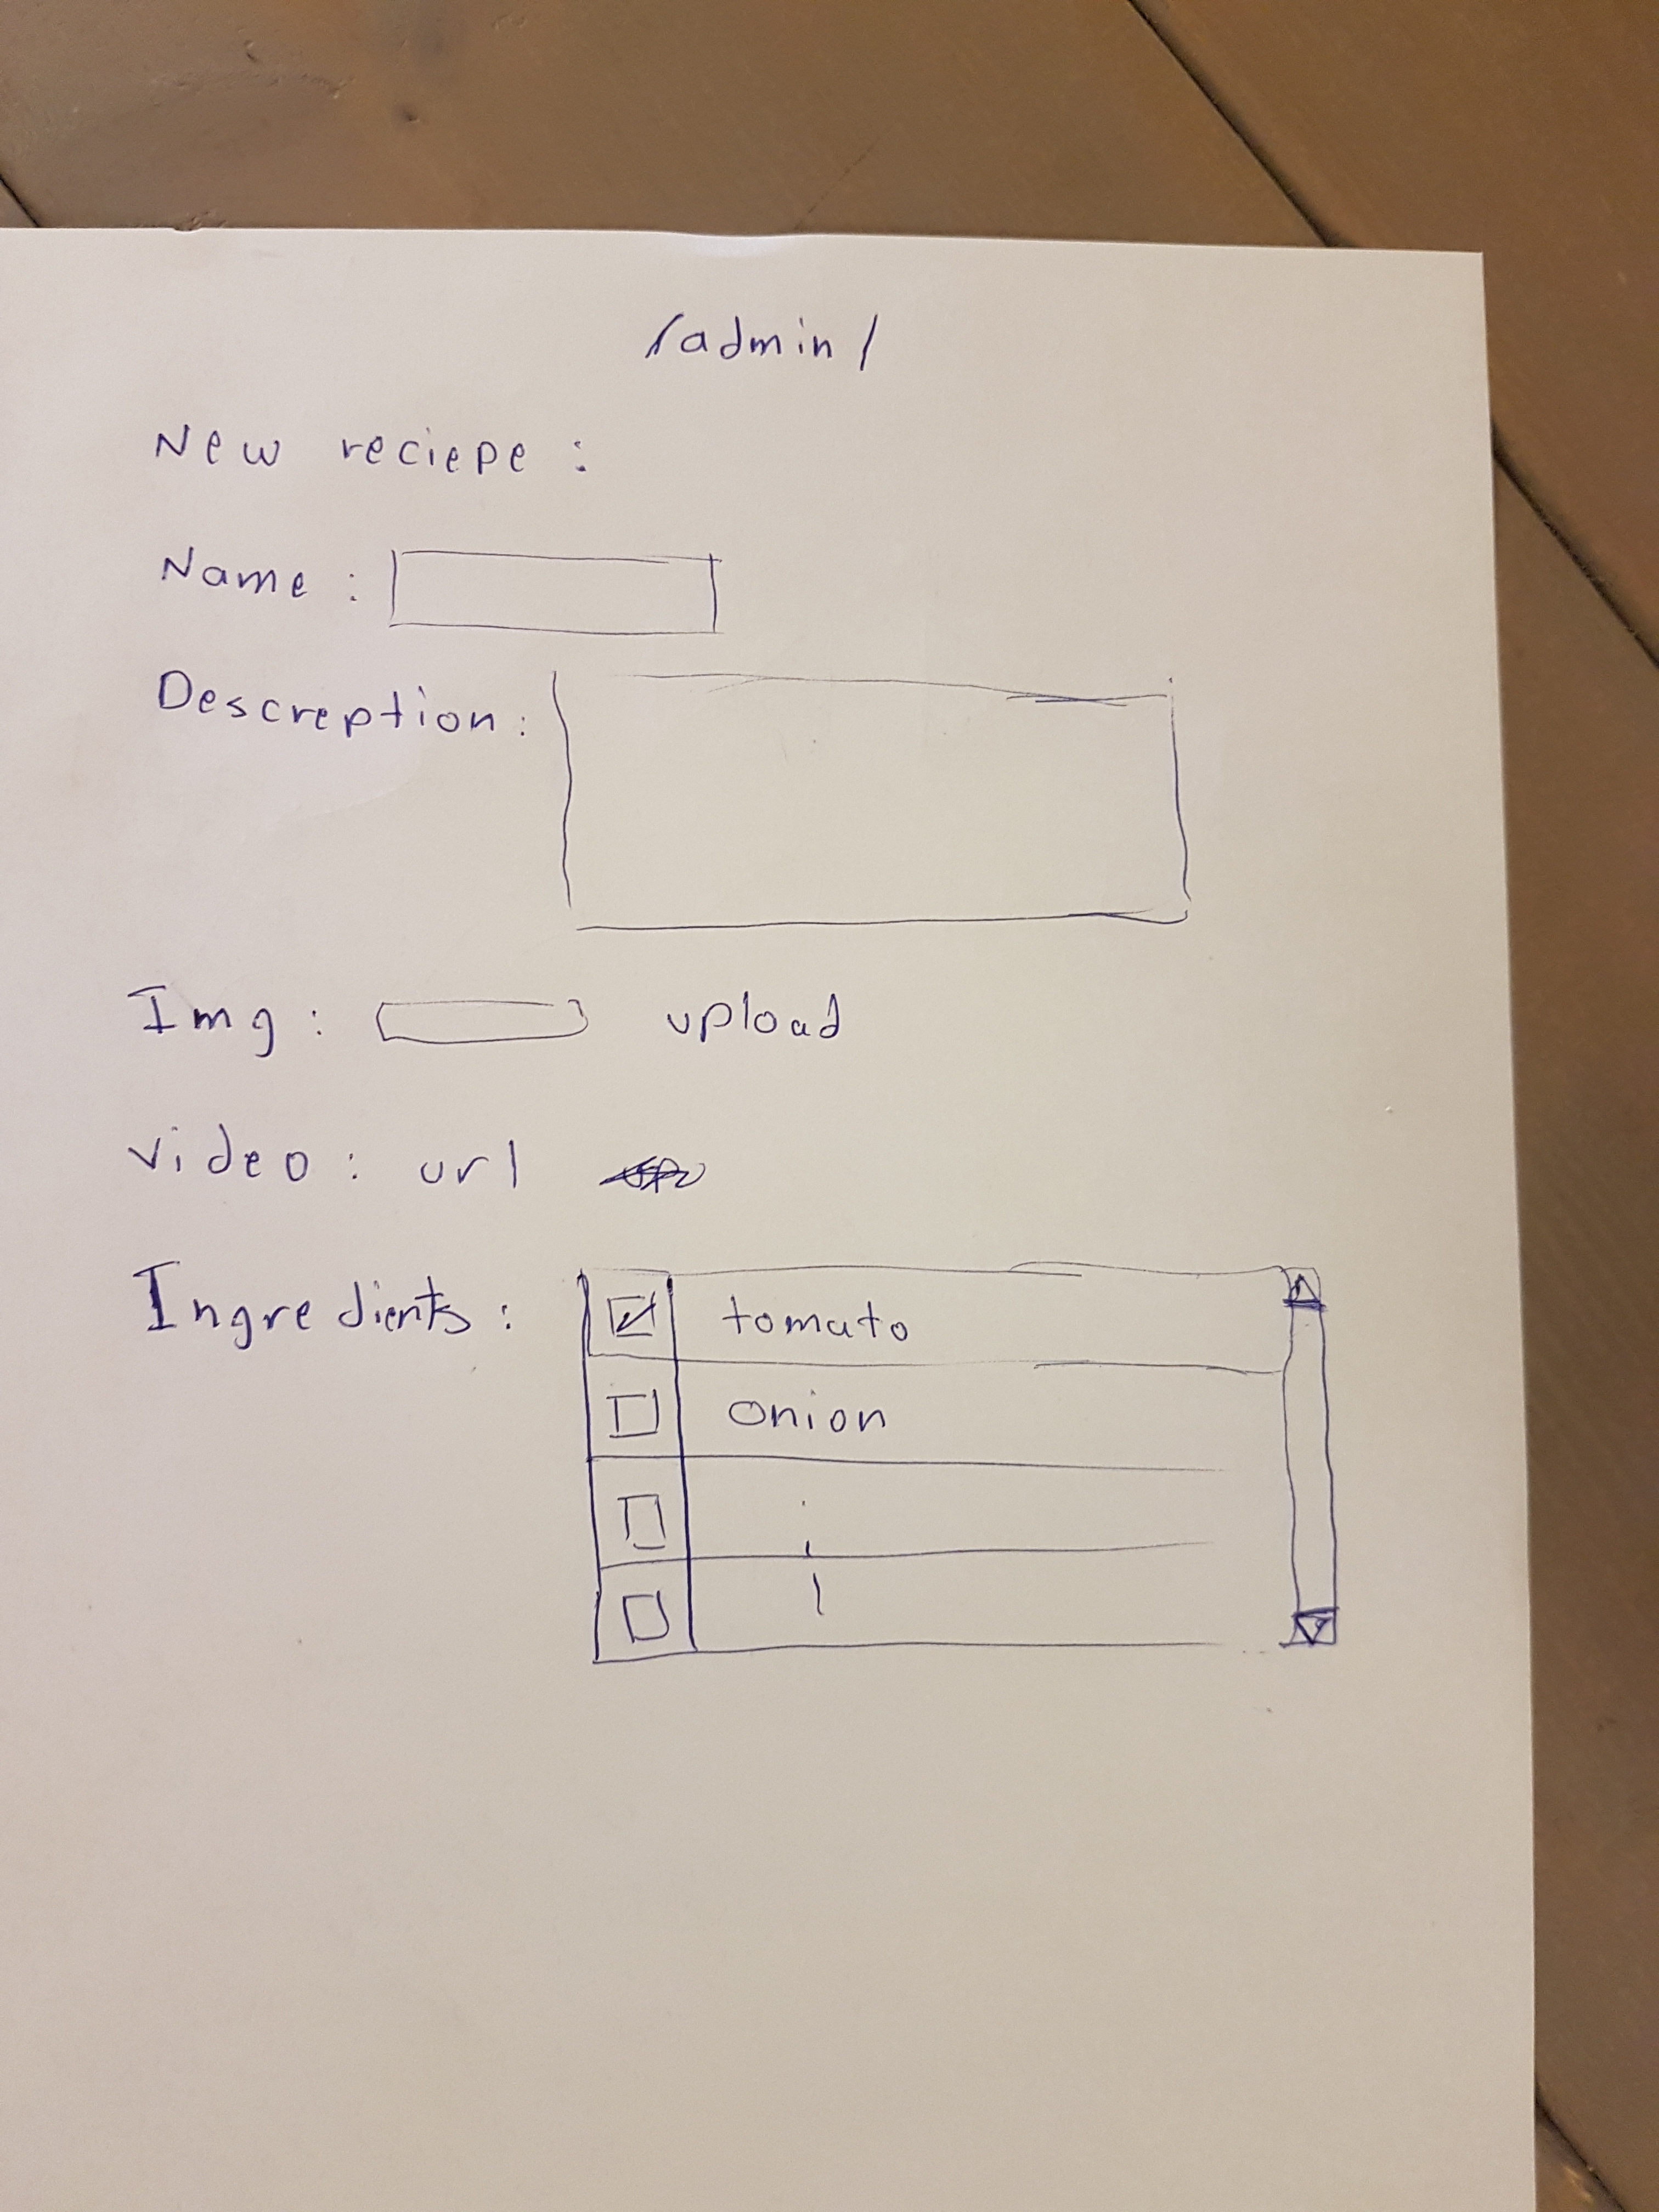 /admin/
New reciepe :
Name :
Descreption :
Img : upload
video : url
Ingredients :
tomato
onion